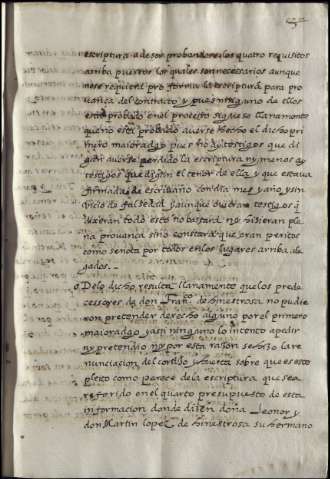 escriptura a de ser probandose los quatro requisitos
arriba puestos los quales son necessarios aunque
no se requiera pro forma la escriptura para pro
vança del contracto y pues ninguno de ellos
esta probado en el processo siguese llanamente
que no esta probado averse hecho el dicho pri
mero maioradgo pues no ay testigos que di
gan averse perdido la escriptura ny menos ay
testigos que digan el tenor de ella y que estava
firmada de escribano con dia mes y año y sin
vicio de falsedad y aunque oviera testigos q̃
dixeran todo esto no bastara ny hizieran ple
na provança sino constara que eran peritos
como se nota por todos en los lugares arriba ale
gados.
De lo dicho resulta llanamente que los prede
cessores de don Fran.co de hinestrosa no pudie
ron pretender derecho alguno por el primero
maioradgo y assi ninguno lo intento a pedir
ny pretendio ny por esta razon se hizo la re
nunciacion del cortijo y huerta sobre que es este
pleito como parece de la escriptura que sea
referido en el quarto presupuesto de esta
informacion donde dizen doña Leonor y
don Martin lopez de hinestrosa su hermano